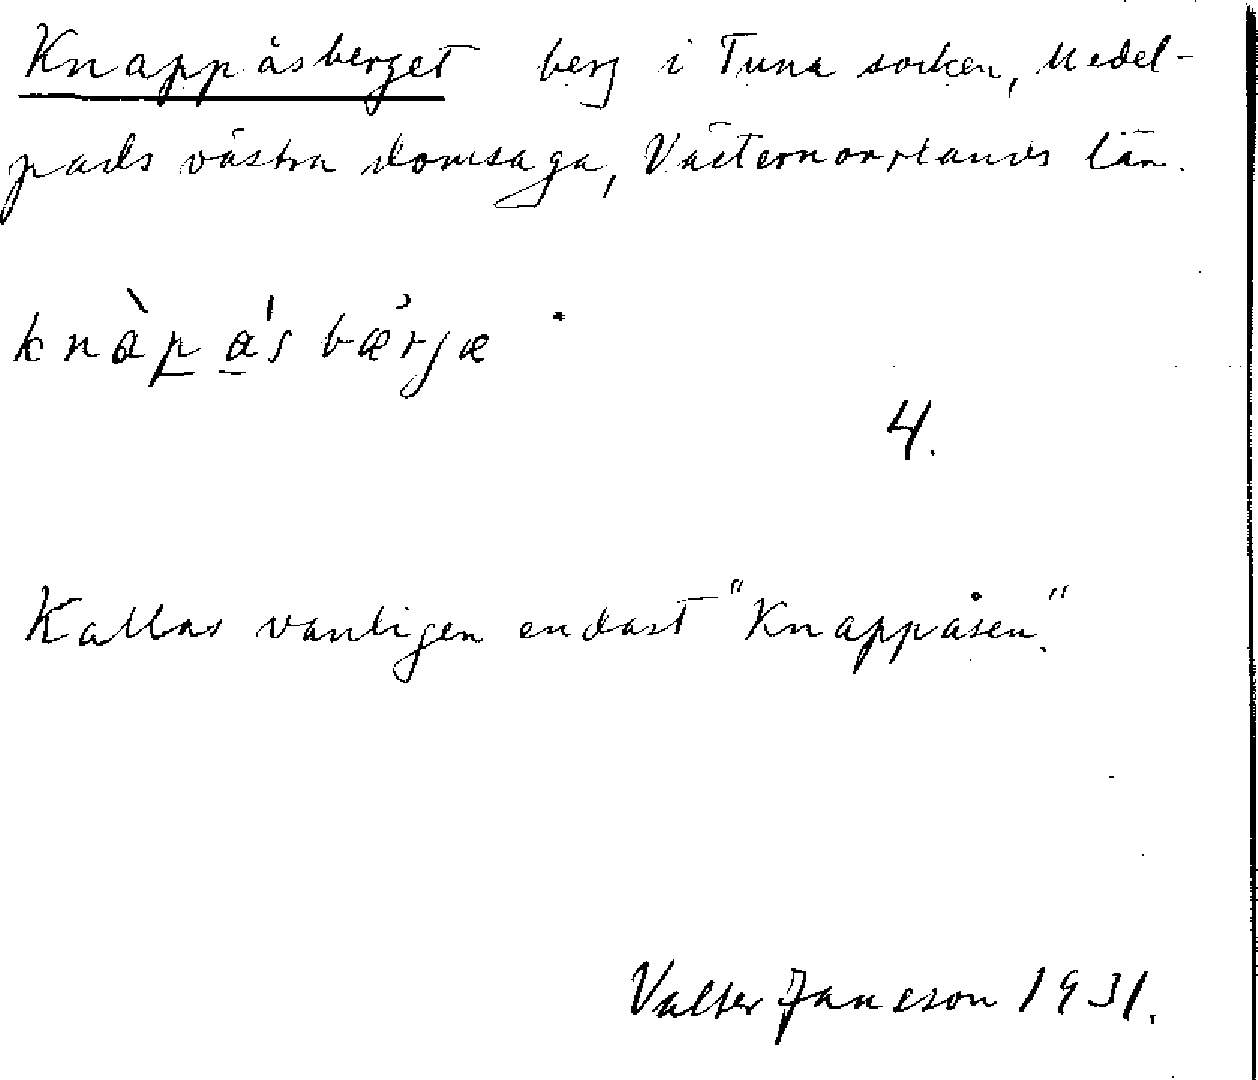 Knappåsberget berg i Tuna socken, Medel-
pads västra domsaga, Västernorrlands län.
knàp̲ a̲'s bær̓jæ
4.
Kallas vanligen endast "Knappåsen."
Valter Jansson 1931.